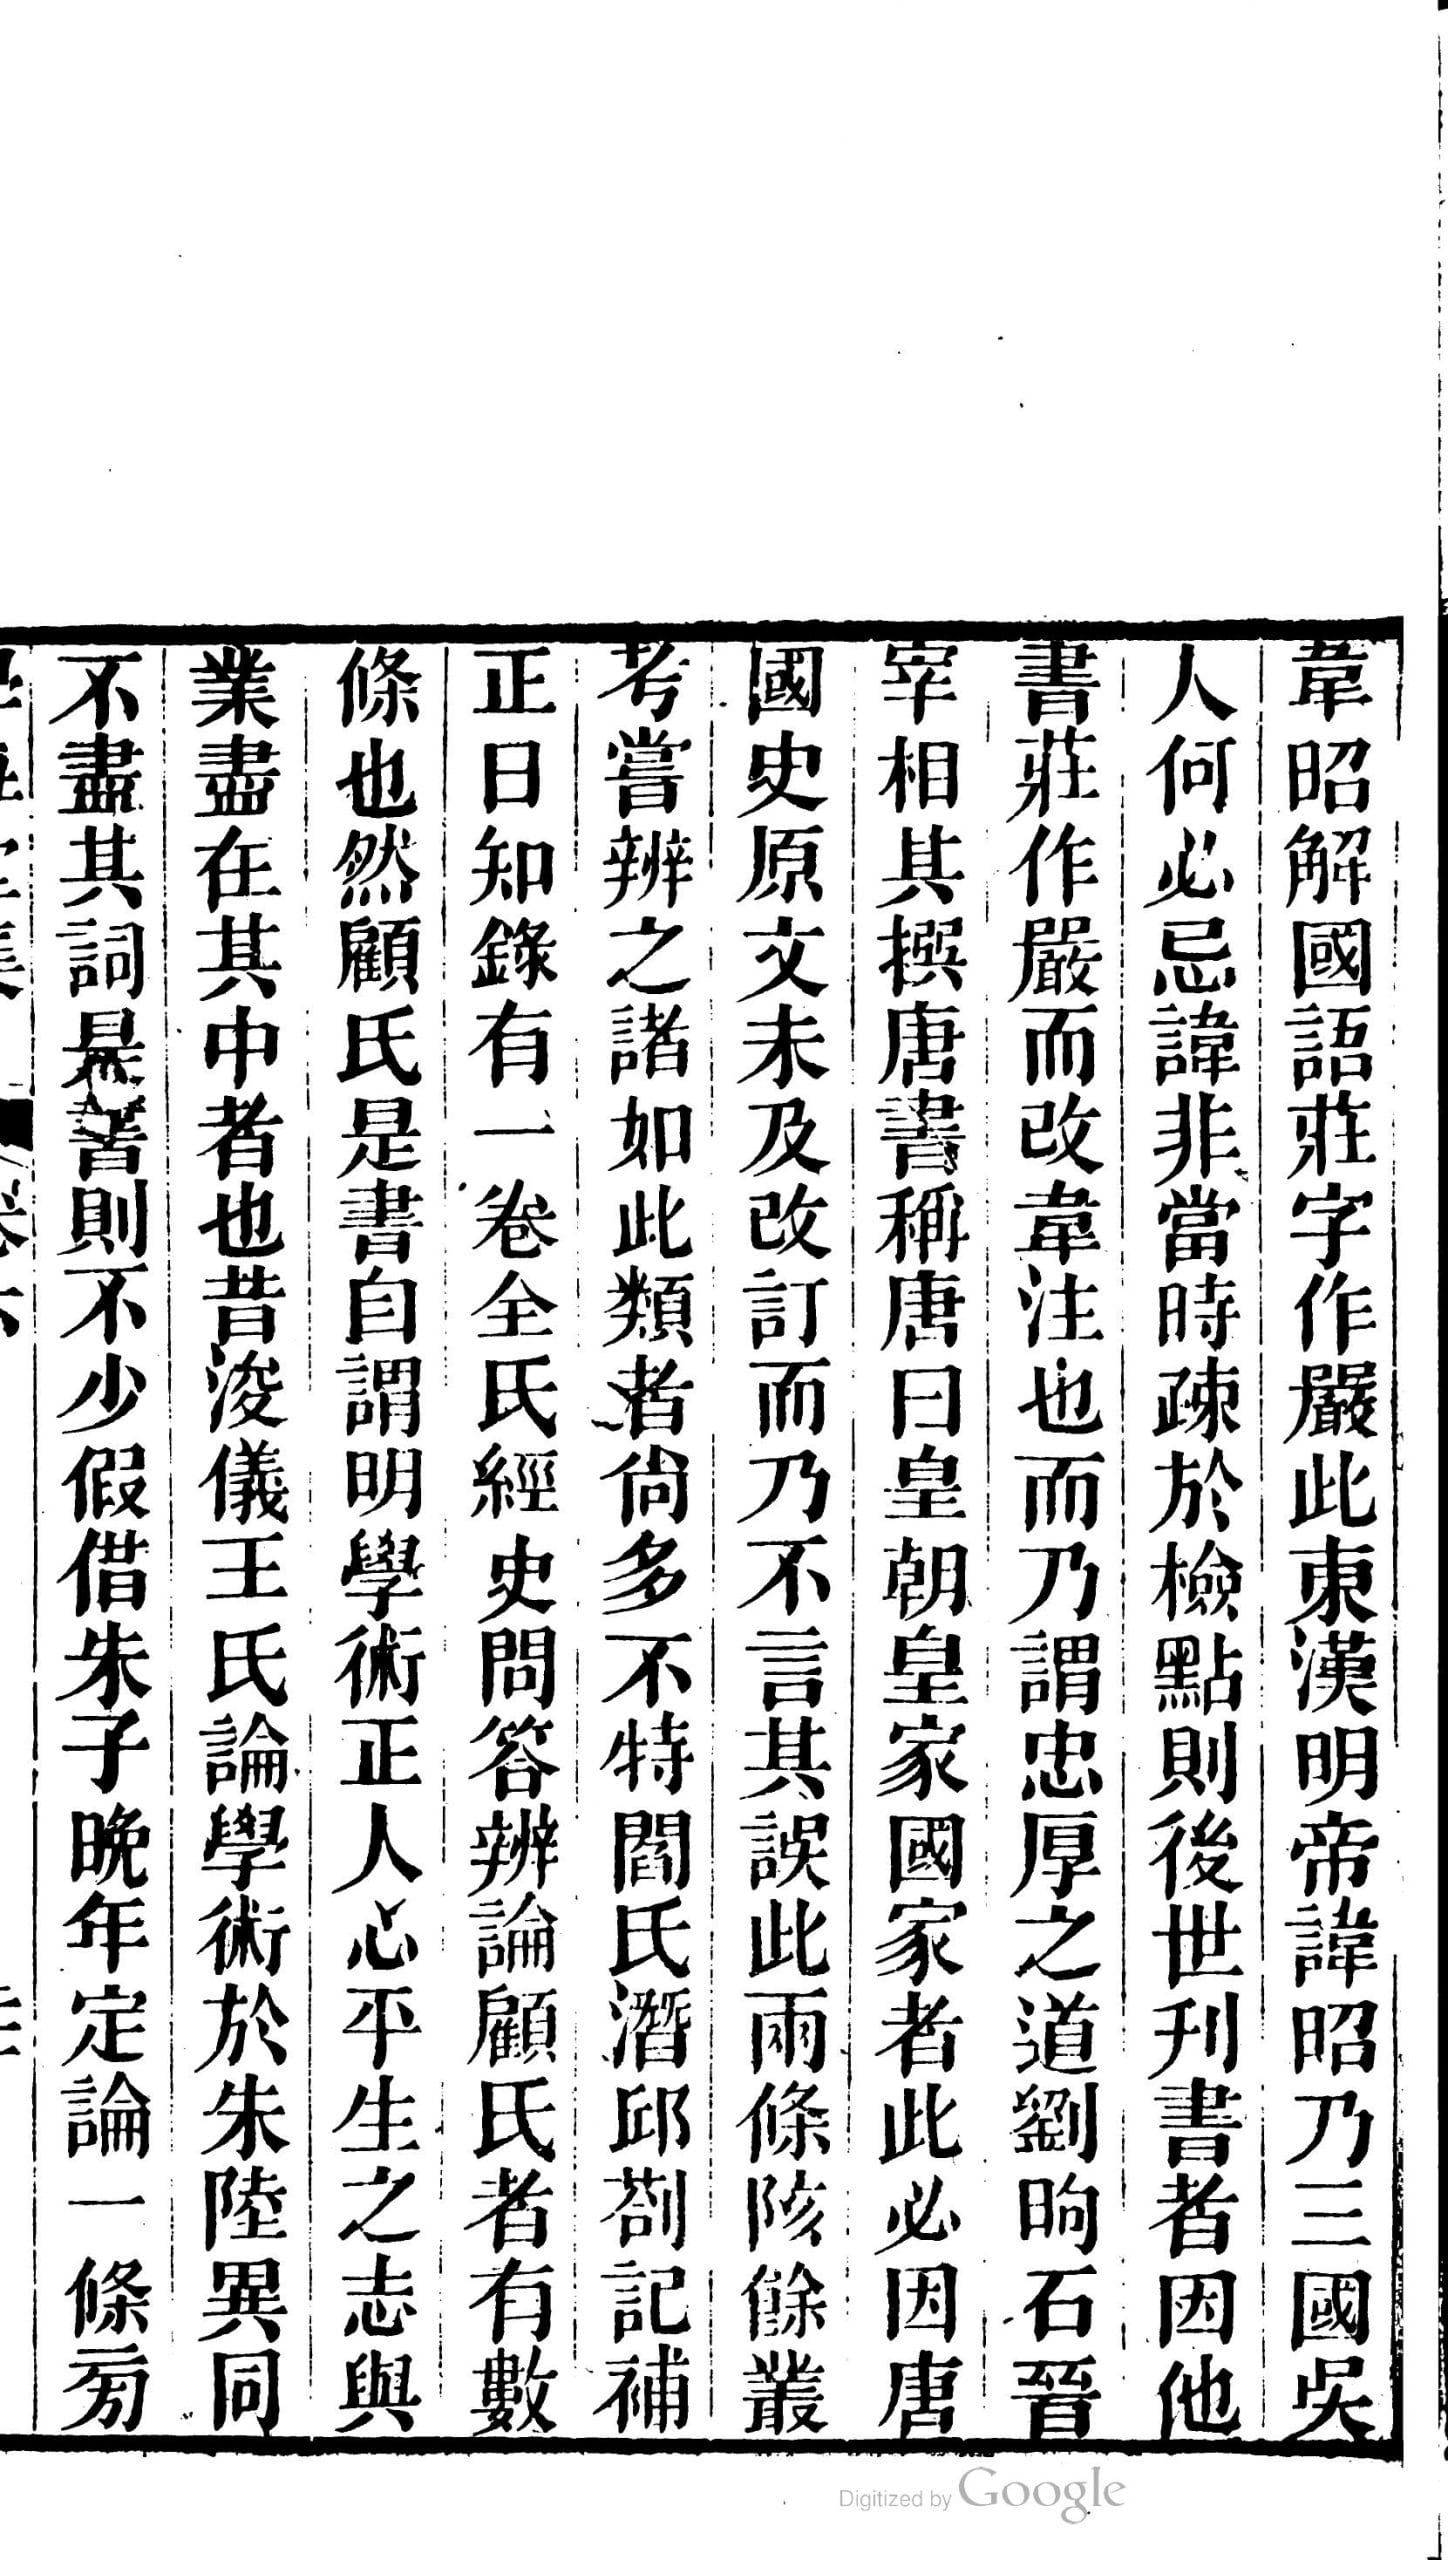 韋昭解國語莊字作嚴此東漢明帝諱昭乃三國吳
人何必忌諱非當時疎於檢點則後世刋書者因他
書莊作嚴而改韋注也而乃謂忠厚之道劉昫石晉
宰相其撰唐書稱唐曰皇朝皇家國家者此必因唐
國史原文未及改訂而乃不言其誤此兩條陔餘叢
考嘗辨之諸如此類者尙多不特閻氏潛邱劄記補
正日知錄有一卷全氏經史問答辨論顧氏者有數
條也然顧氏是書自謂明學術正人心平生之志與
業盡在其中者也昔浚儀王氏論學術於朱陸異同
不盡其詞是書則不少假借朱子晚年定論一條旁
Digitized by Google